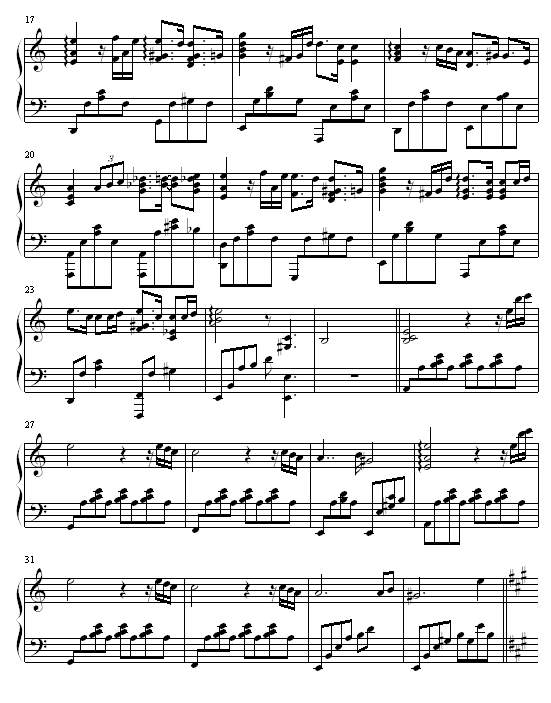 17
20
3
23
27
31